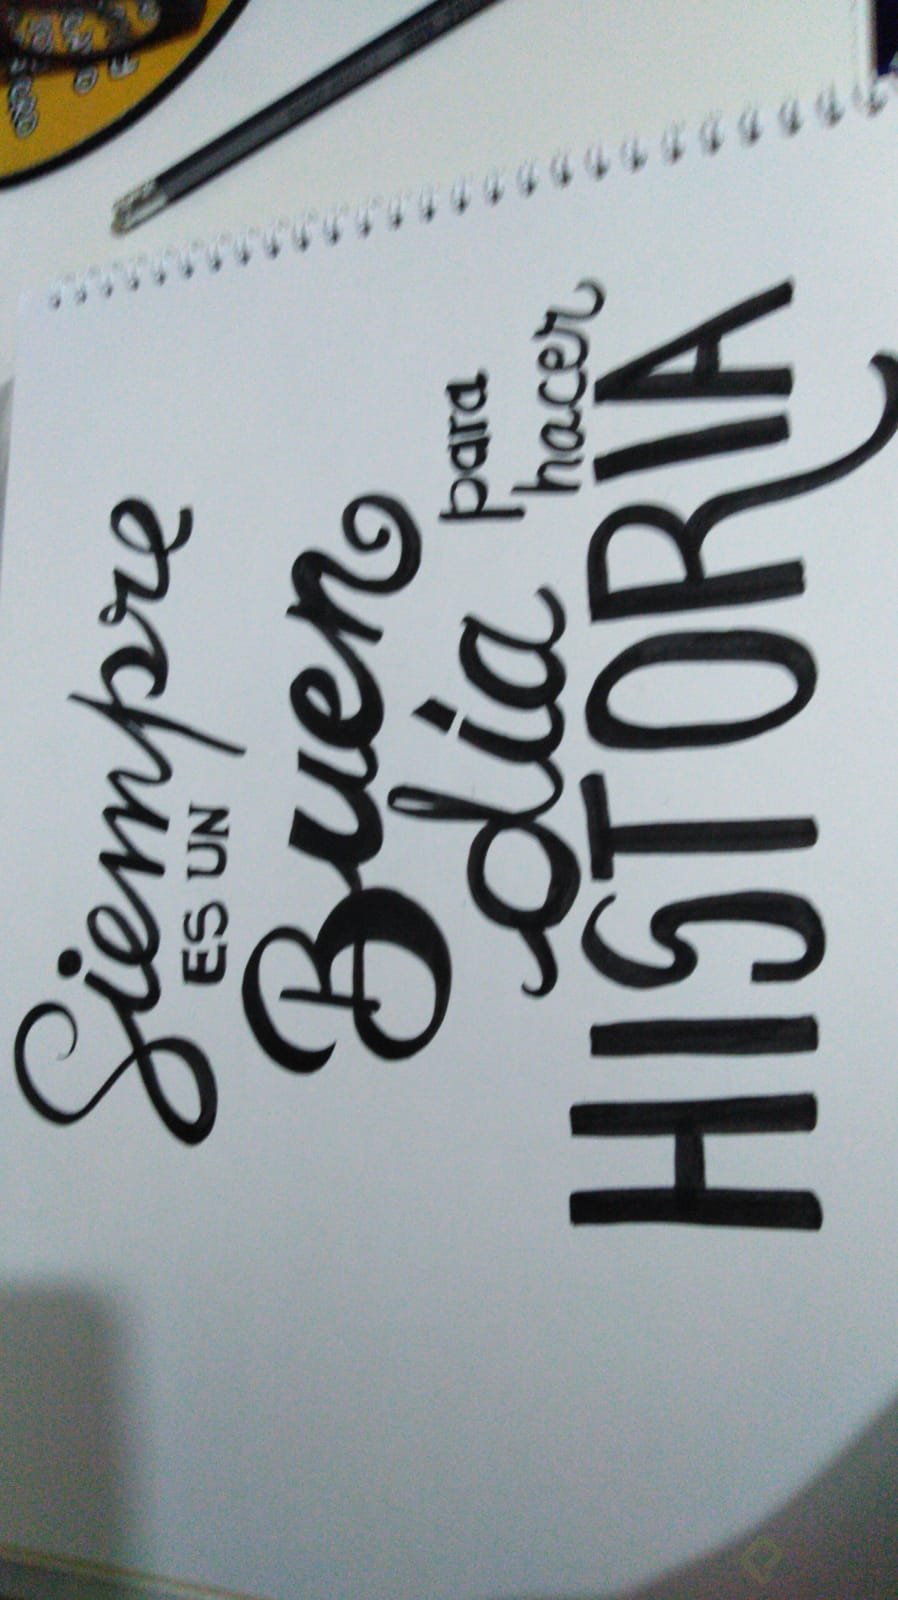 Siempre
ES UN
Buen
dia
para
hacer
HISTORIA